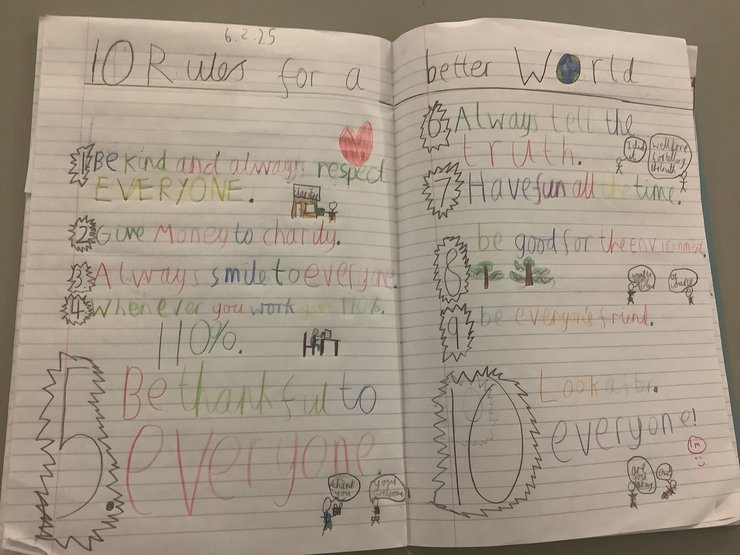 6.2.25
10 Rules for a better World
1 Be kind and always respect
EVERYONE.
charity
2 Give Money to charity.
3 Always smile to everyone.
4 Whenever you work give 110%.
110%.
5 Be thankful to
everyone
thank you
your welcome
6 Always tell the
truth.
I did it
well done for telling the truth
7 Have fun all the time.
8 be good for the environment.
9 be everyone's friend.
10 Look after
everyone!
are you okay